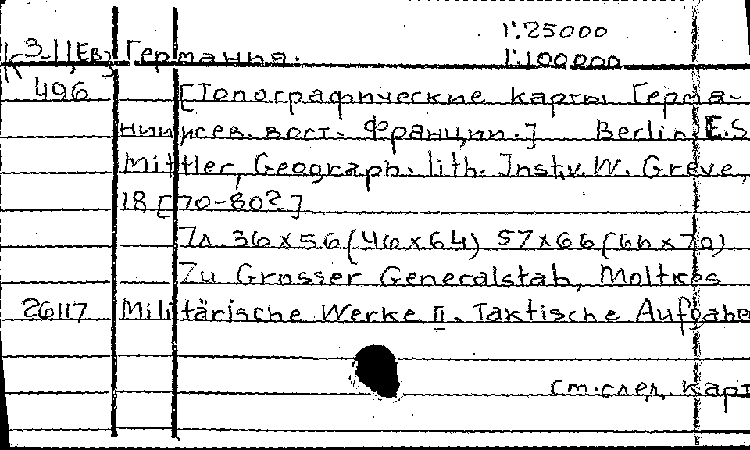 1:25000
К 3-Ц.Ев. Германия. 1:100000
496 [Топографические карты Герма-
нии и сев. вост. Франции.] Berlin, E.S.
Mittler, Geograph. lith. Inst. v. W. Greve,
18[70-80?]
7л. 36x56(46x64) 57x66(66x70)
Zu Grosser Generalstab, Moltkes
26117 Militärische Werke II. Taktische Aufgabe
См. след. карт